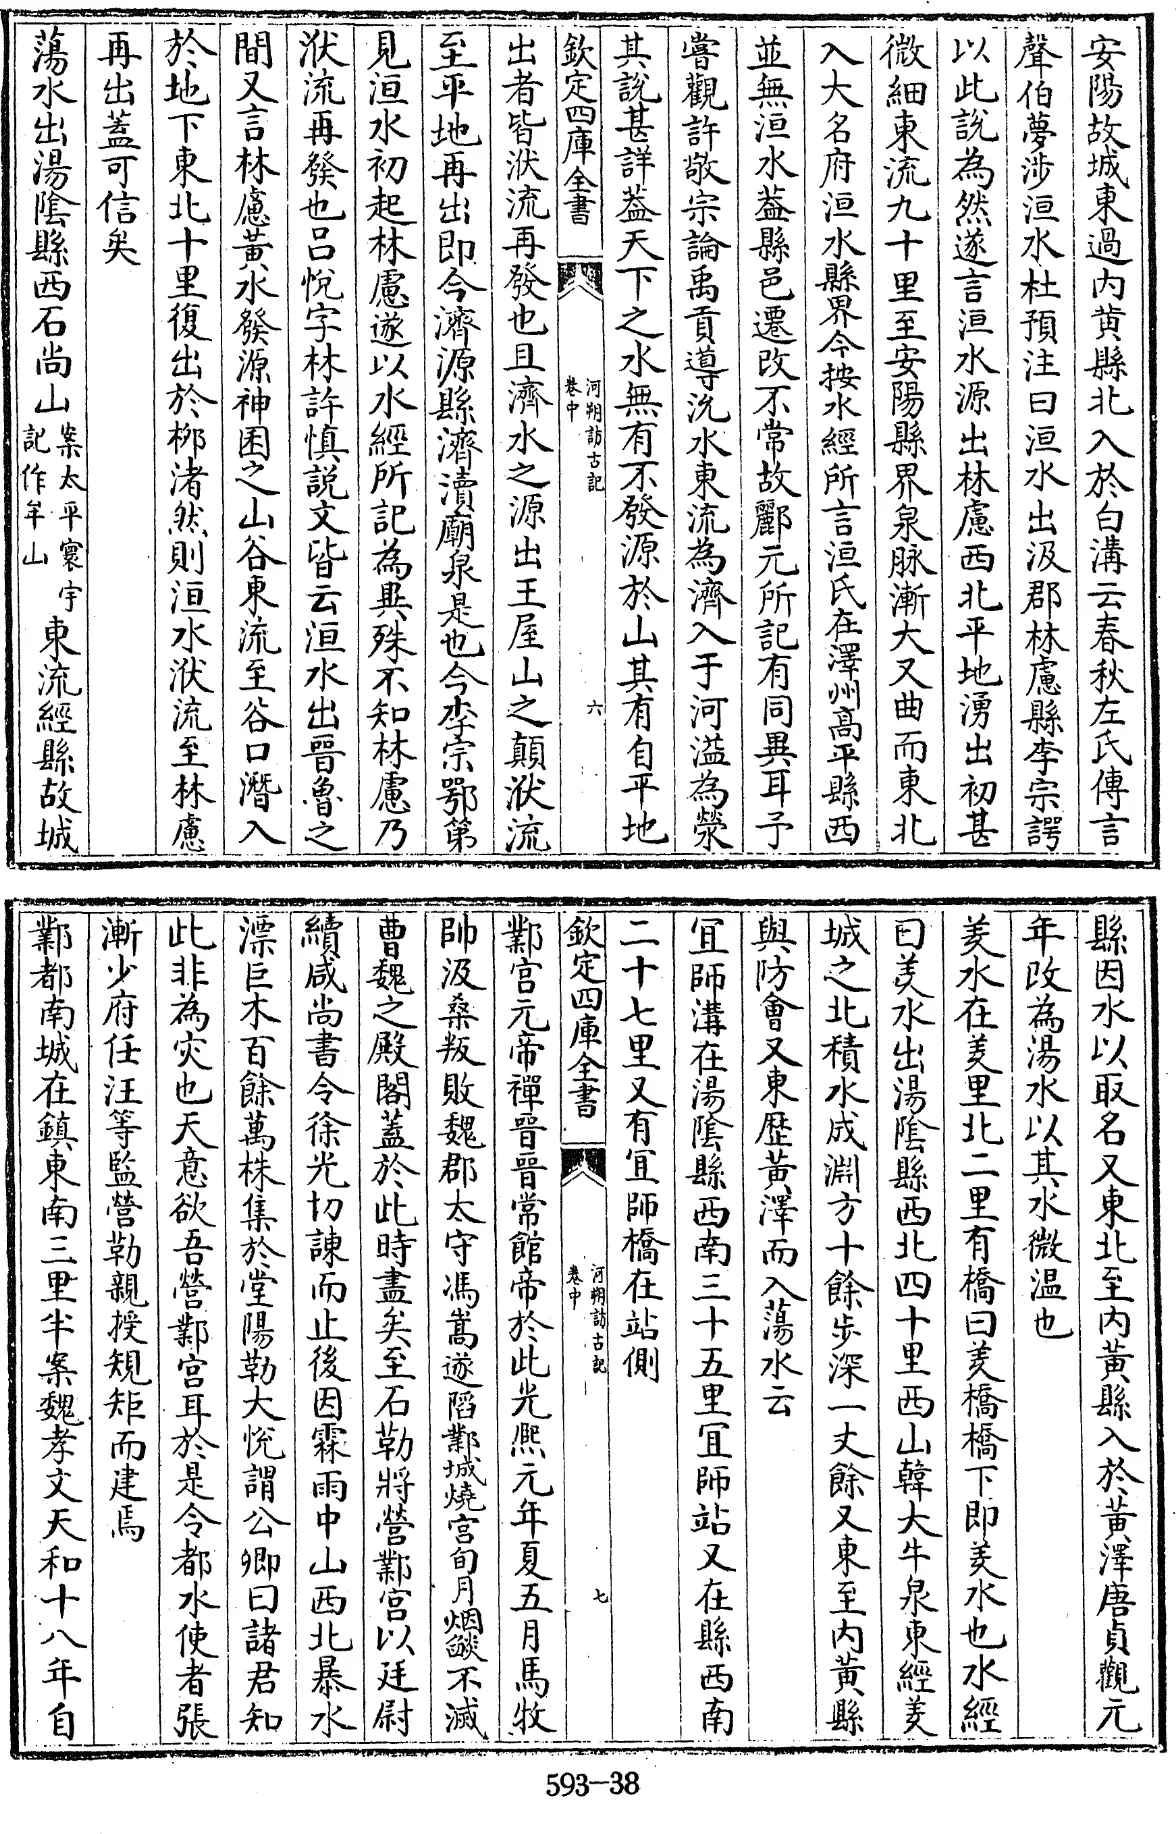 安陽故城東過内黄縣北入於白溝云春秋左氏傳言
聲伯夢涉洹水杜預注曰洹水出汲郡林慮縣李宗諤
以此説為然遂言洹水源出林慮西北平地湧出初甚
微細東流九十里至安陽縣界泉脉漸大又曲而東北
入大名府洹水縣界今按水經所言洹氏在澤州高平縣西
並無洹水葢縣邑遷改不常故酈元所記有同異耳予
嘗觀許敬宗論禹貢導沇水東流為濟入于河溢為滎
其說甚詳葢天下之水無有不發源於山其有自平地
欽定四庫全書
河朔訪古記
卷中
六
出者皆洑流再發也且濟水之源出王屋山之顛洑流
至平地再出即今濟源縣濟瀆廟泉是也今李宗鄂第
見洹水初起林慮遂以水經所記為異殊不知林慮乃
洑流再發也吕忱字林許慎說文皆云洹水出晉魯之
間又言林慮黄水發源神囷之山谷東流至谷口潛入
於地下東北十里復出於栁渚然則洹水洑流至林慮
再出蓋可信矣
蕩水出湯隂縣西石尚山案太平寰宇記作牟山東流經縣故城
縣因水以取名又東北至内黄縣入於黄澤唐貞觀元
年改為湯水以其水微温也
羑水在羑里北二里有橋曰羑橋橋下即羑水也水經
曰羑水出湯隂縣西北四十里西山韓大牛泉東經羑
城之北積水成淵方十餘步深一丈餘又東至内黄縣
與防會又東歴黄澤而入蕩水云
宜師溝在湯隂縣西南三十五里宜師站又在縣西南
二十七里又有宜師橋在站側
欽定四庫全書
河朔訪古記
卷中
七
鄴宫元帝禪晉晉常館帝於此光熈元年夏五月馬牧
帥汲桑叛敗魏郡太守馮嵩遂䧟鄴城燒宫旬月烟燄不滅
曹魏之殿閣蓋於此時盡矣至石勒將營鄴宫以廷尉
續咸尚書令徐光切諫而止後因霖雨中山西北暴水
漂巨木百餘萬株集於堂陽勒大悅謂公卿曰諸君知
此非為灾也天意欲吾營鄴宫耳於是令都水使者張
漸少府任汪等監營勒親授規矩而建焉
鄴都南城在鎮東南三里半案魏孝文天和十八年自
593-38